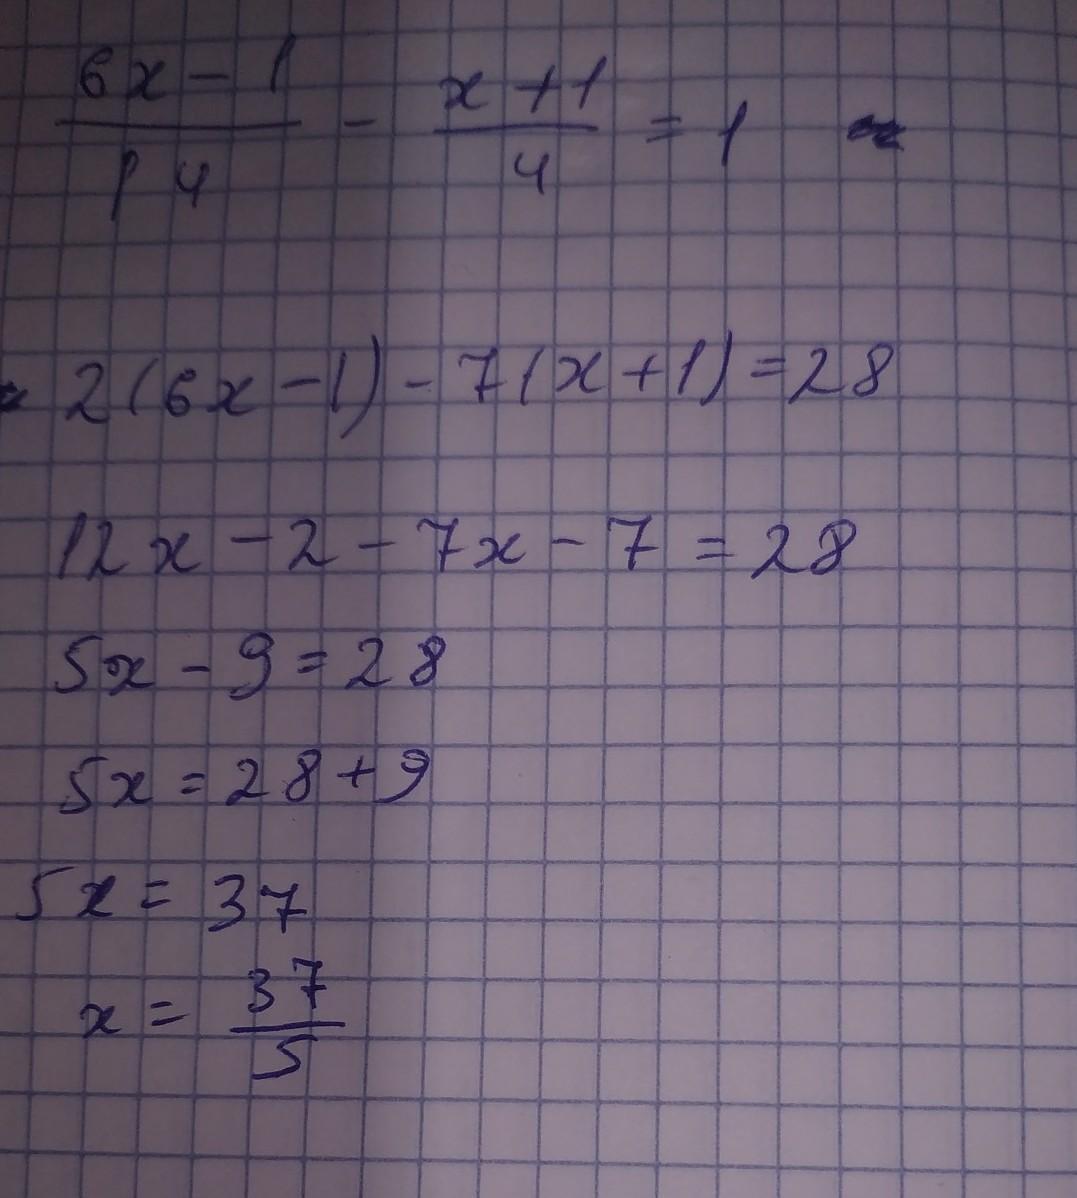 (6x - 1)/14 - (x + 1)/4 = 1
2(6x - 1) - 7(x + 1) = 28
12x - 2 - 7x - 7 = 28
5x - 9 = 28
5x = 28 + 9
5x = 37
x = 37/5